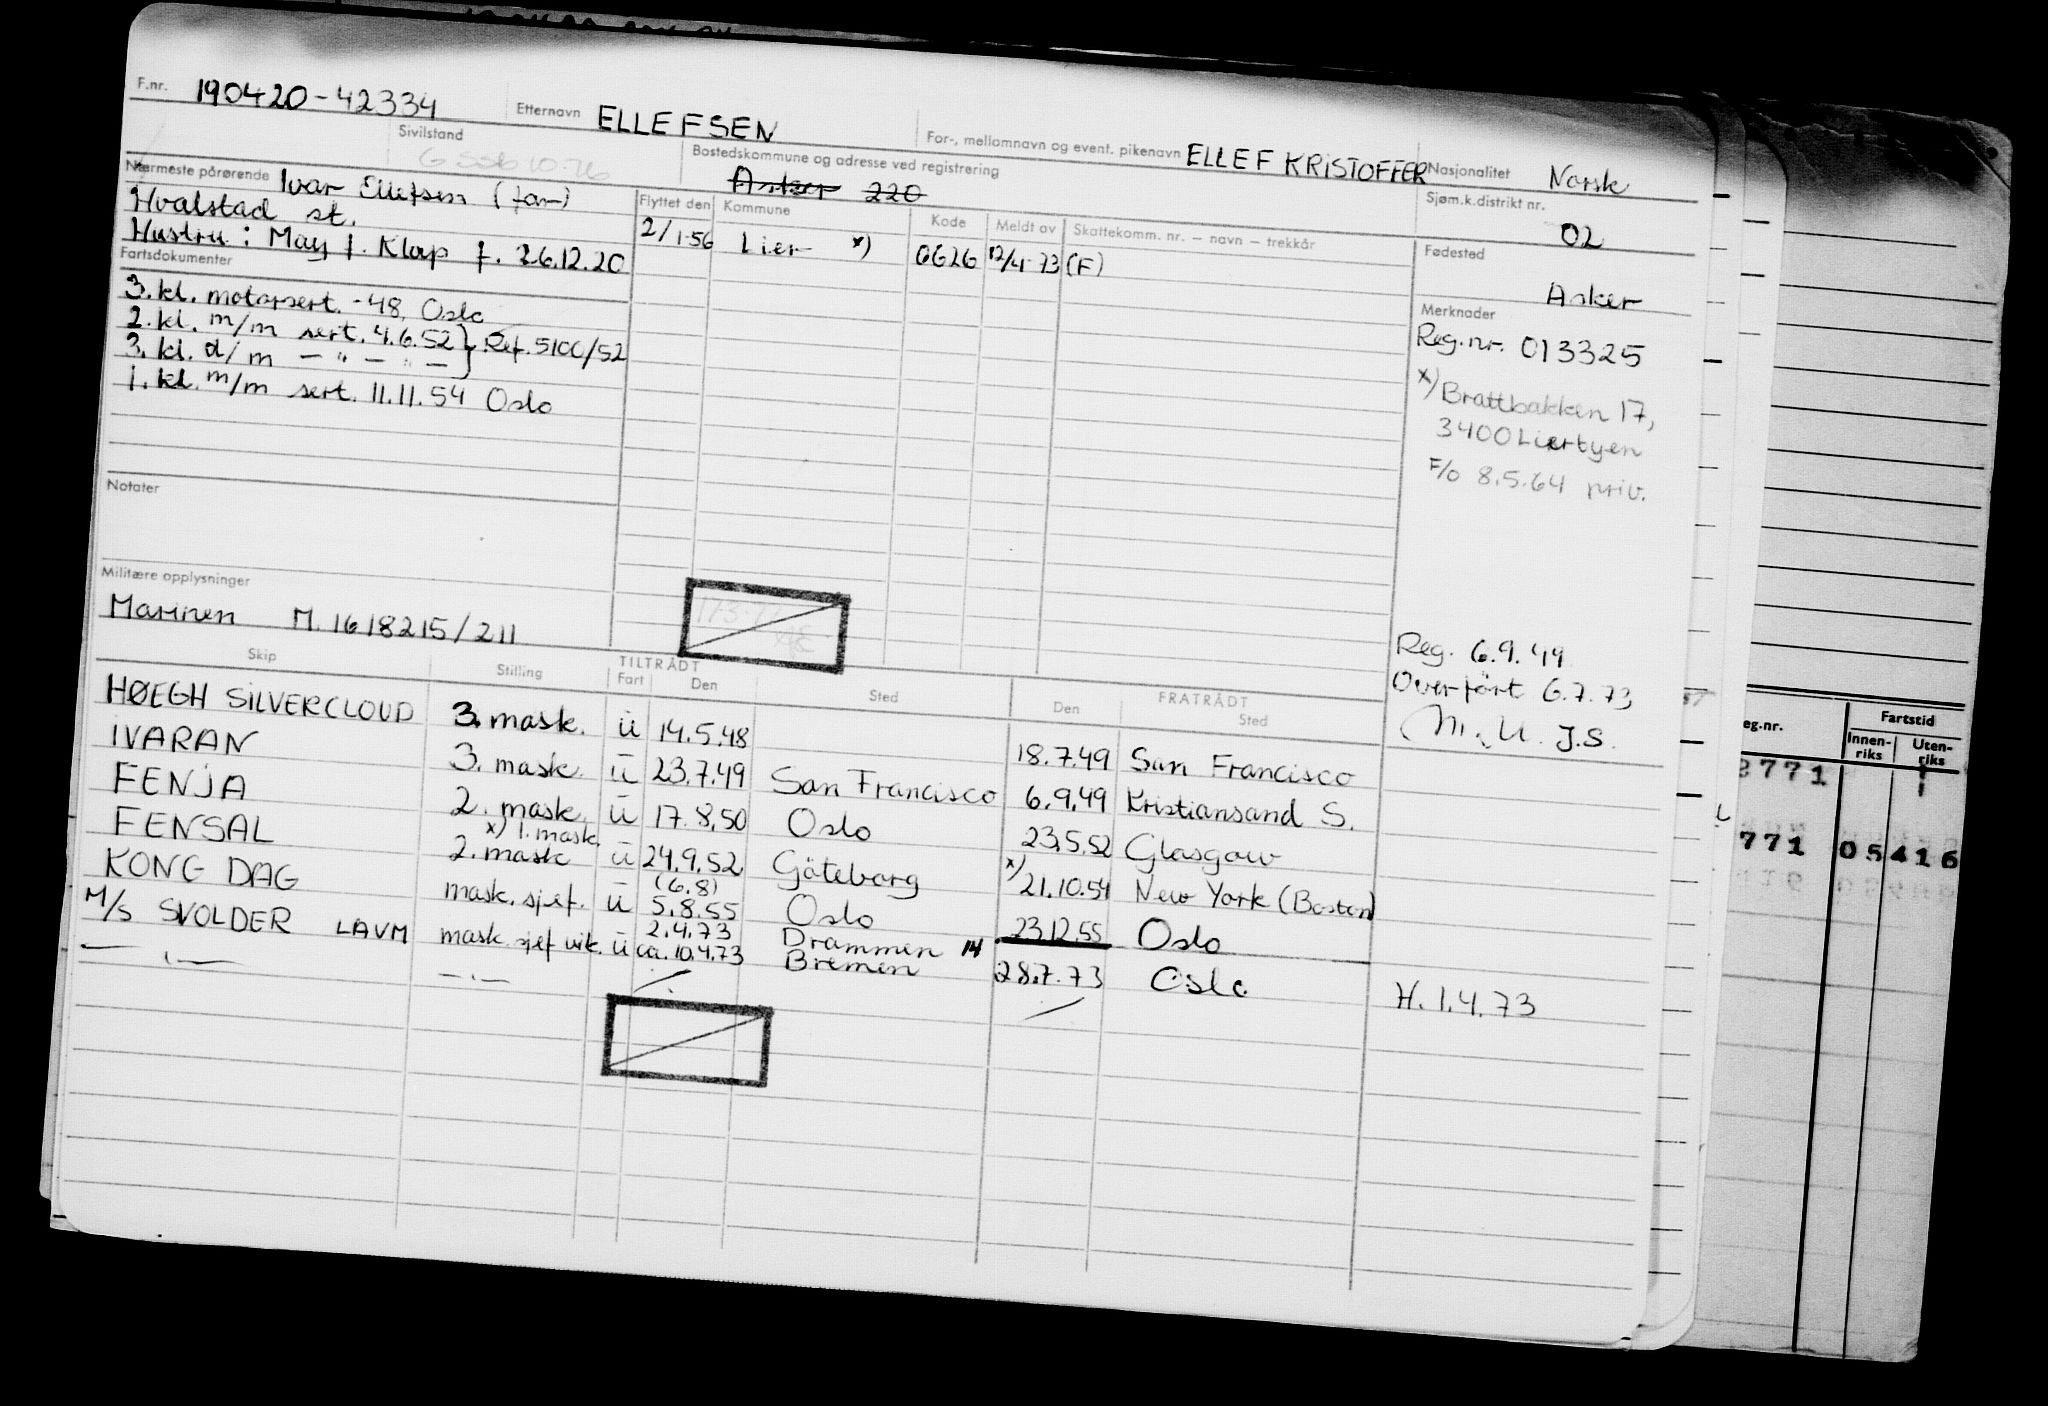 F.nr. 190420-42334 Etternavn ELLEFSEN For-, mellomnavn og event. pikenavn ELLEF KRISTOFFER Nasjonalitet Norsk
Sivilstand G SSB 10.76 Bostedskommune og adresse ved registrering Asker 220 Sjøm.k.distrikt nr. 02
Nærmeste pårørende Ivar Ellefsen (far)
Hvalstad st.
Hustru: May f. Klop f. 26.12.20
Flyttet den Kommune Kode Meldt av Skattekomm. nr. – navn – trekkår
2/1-56 Lier x) 0626 12/4-73 (F)
Fødested
Asker
Fartsdokumenter
3. kl. motorsert. -48, Oslo
2. kl. m/m sert. 4.6.52 } Ref. 5100/52
3. kl. d/m — " — " —
1. kl. m/m sert. 11.11.54 Oslo
Merknader
Reg.nr. 013325
x) Brattbakken 17,
3400 Lierbyen
F/o 8.5.64 priv.
Notater
Militære opplysninger
Marinen M. 1618215/211
Reg. 6.9.49
Overført 6.7.73
M.U. J.S.
Skip Stilling TILTRÅDT FRATRÅDT
Fart Den Sted Den Sted
HØEGH SILVERCLOUD 3. mask. ü 14.5.48 18.7.49 San Francisco
IVARAN 3. mask. ü 23.7.49 San Francisco 6.9.49 Kristiansand S.
FENJA 2. mask. ü 17.8.50 Oslo 23.5.52 Glasgow
x) 1. mask.
FENSAL 2. mask ü 24.9.52 Göteborg x) 21.10.54 New York (Boston)
(6.8)
KONG DAG mask. sjef. ü 5.8.55 Oslo 23.12.55 Oslo
2.4.73 Drammen 14
M/S SVOLDER LAVM mask. sjef vik. ü ca. 10.4.73 Bremen 28.7.73 Oslo H. 1.4.73
— " — — " —
eg.nr. Fartstid
Innen-riks Uten-riks
771 05416